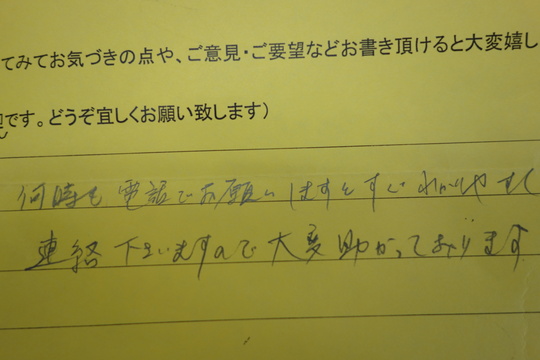 てみてお気づきの点や、ご意見・ご要望などお書き頂けると大変嬉し
です。どうぞ宜しくお願い致します)
何時も電話でお願いしますとすぐわかりやすく
連絡下さいますので大変助かっております